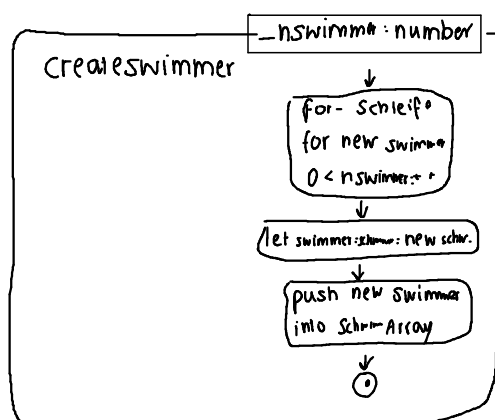 _nswimmer: number
createswimmer
for- Schleife
for new swimmer
0 < nswimmer++
let swimmer: : new schw.
push new swimmer
into Array